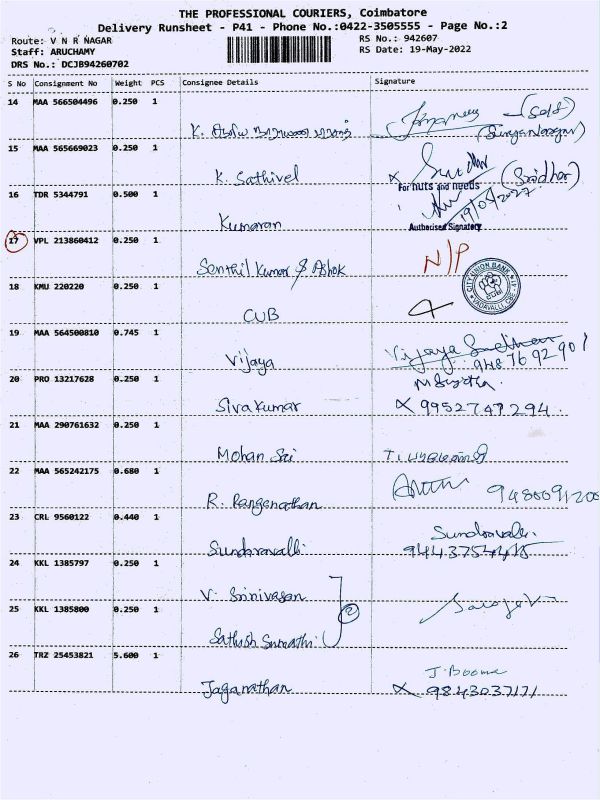 THE PROFESSIONAL COURIERS, Coimbatore
Delivery Runsheet - P41 - Phone No.:0422-3505555 - Page No.:2
Route: V N R NAGAR
RS No.: 942607
Staff: ARUCHAMY
RS Date: 19-May-2022
DRS No.: DCJB94260702
S No Consignment No Weight PCS Consignee Details Signature
14 MAA 566504496 0.250 1
K.
(Self)
15 MAA 565669023 0.250 1
K. Sathivel
(Sridhar)
For nuts and needs
16 TDR 5344791 0.500 1
Kumaran
19/05/2022
Authorised Signatory
17 VPL 213860412 0.250 1
Senthil Kumar & Ashok
N/P
18 KMU 220220 0.250 1
CUB
CITY UNION BANK
VADAVALLI, CBE
19 MAA 564500810 0.745 1
Vijaya
Vijaya
9487692901
20 PRO 13217628 0.250 1
Siva kumar
X 9952747294.
21 MAA 290761632 0.250 1
Mohan Sai
22 MAA 565242175 0.680 1
R. Ranganathan
23 CRL 9560122 0.440 1
Sundaravalli
Sundravalli.
24 KKL 1385797 0.250 1
V. Srinivasan
2
25 KKL 1385800 0.250 1
Sathish Sumathi
26 TRZ 25453821 5.600 1
Jaganathan
J. Booma
X 9843037171